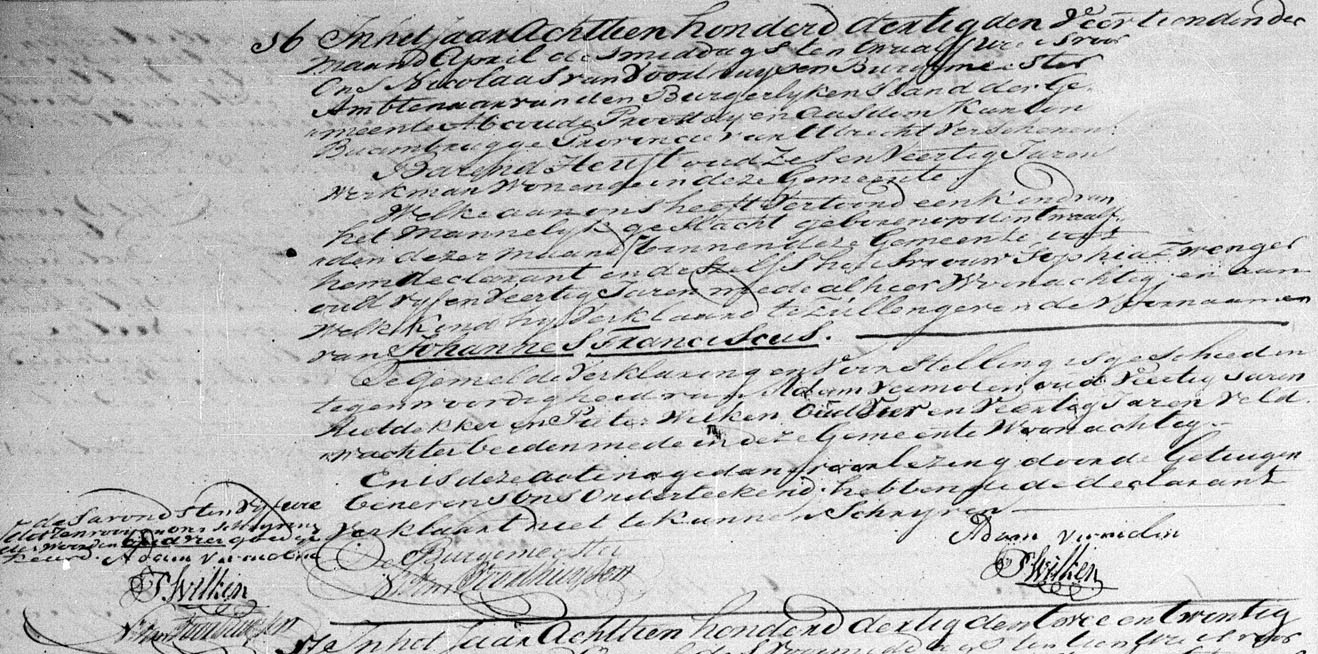 56 In het jaar Achttien honderd dertig den Veertienden der
maand April des middags ten twaalf ure is voor
Ons Nicolaas van Voorthuysen Burgemeester
Ambtenaar van den Burgerlyken Stand der Ge-
meente Abcoude Proostdy en Aasdom Kanton
Baambrugge Provincie van Utrecht Verschenen:
Barend Heust oud Zes en Veertig Jaren
Werkman Wonende in deze Gemeente.
Welke aan ons heeft Vertoond een Kind van
het Mannelyk geslacht geboren op den twaalf-
den dezer maand binnen deze Gemeente uit
hem declarant en deszelfs huisvrouw Sophia Zwenger
oud vyf en Veertig Jaren mede alhier Woonachtig en aan
Welk Kind hy Verklaard te Zullen geven de Voornaamen
van Johannes Franciscus.
De Gemelde Verklaring en Voorstelling is geschied in
tegenwoordigheid van Adam Vermolen oud Veertig Jaren
Rietdekker en Pieter Wilken Oud Vier en Veertig Jaren Veld-
wachter beiden mede in deze Gemeente Woonachtig.
En is deze acte na gedane voorlezing door de Getuigen
benevens Ons Onderteekend. hebbende de declarant
Verklaart niet te kunnen Schryven
De Burgemeester
N van Voorthuysen
Adam Vermolen
P Wilken
des avonds ten Vyf ure
der Woorden Oud vier goedge-
keurd. Adam Vermolen
P Wilken
N van Voorthuysen
57 In het Jaar Achttien honderd dertig den twee en twintig